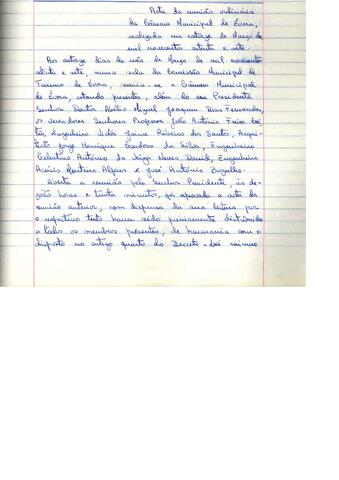 Acta da reunião ordinária
da Câmara Municipal de Évora,
realizada em catorze de Março de
mil novecentos oitenta e sete.
Aos catorze dias do mês de Março de mil novecentos
oitenta e sete, numa sala da Comissão Municipal de
Turismo de Évora, reuniu-se a Câmara Municipal
de Évora, estando presentes, além do seu Presidente
Senhor Doutor Abílio Miguel Joaquim Dias Fernandes,
os vereadores Senhores Professor João António
tos, Engenheiro Victor Jaime Ribeiro dos Santos, Arqui-
tecto Jorge Henrique Cardoso da Silva, Engenheiro
Celestino António da Veiga Neves David, Engenheiro
Acácio Monteiro Alferes e José António
Aberta a reunião pelo Senhor Presidente, às de-
zoito horas e trinta minutos, foi aprovada a acta da
reunião anterior, com dispensa da sua leitura por
o respectivo texto haver sido previamente distribuído
a todos os membros presentes, de harmonia com o
disposto no artigo quarto do Decreto-Lei número